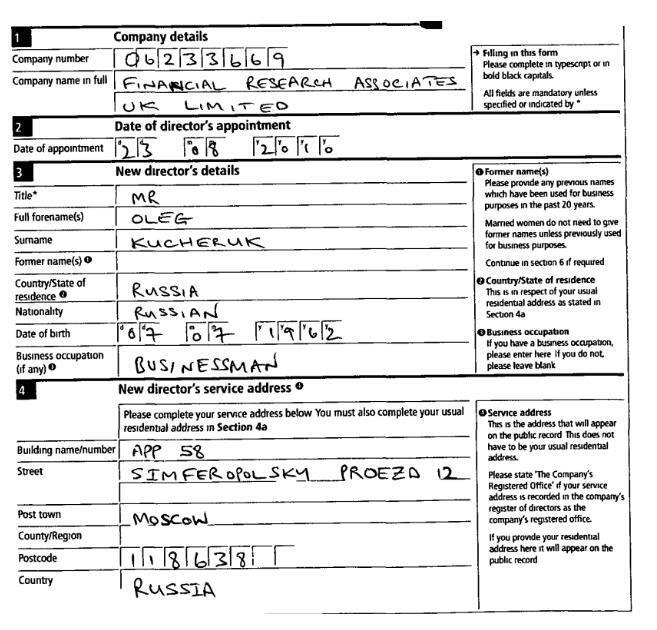 1 Company details
Company number 06233669
Company name in full FINANCIAL RESEARCH ASSOCIATES
UK LIMITED
→ Filling in this form
Please complete in typescript or in
bold black capitals.
All fields are mandatory unless
specified or indicated by *
2 Date of director's appointment
Date of appointment 23 08 2010
3 New director's details
Title* MR
Full forename(s) OLEG
Surname KUCHERUK
Former name(s) ❶
Country/State of
residence ❷ RUSSIA
Nationality RUSSIAN
Date of birth 07 07 1962
Business occupation
(if any) ❸ BUSINESSMAN
❶ Former name(s)
Please provide any previous names
which have been used for business
purposes in the past 20 years.
Married women do not need to give
former names unless previously used
for business purposes.
Continue in section 6 if required
❷ Country/State of residence
This is in respect of your usual
residential address as stated in
Section 4a
❸ Business occupation
If you have a business occupation,
please enter here If you do not,
please leave blank
4 New director's service address ❹
Please complete your service address below You must also complete your usual
residential address in Section 4a
Building name/number APP 58
Street SIMFEROPOLSKY PROEZD 12
Post town MOSCOW
County/Region
Postcode 118638
Country RUSSIA
❹ Service address
This is the address that will appear
on the public record This does not
have to be your usual residential
address.
Please state 'The Company's
Registered Office' if your service
address is recorded in the company's
register of directors as the
company's registered office.
If you provide your residential
address here it will appear on the
public record